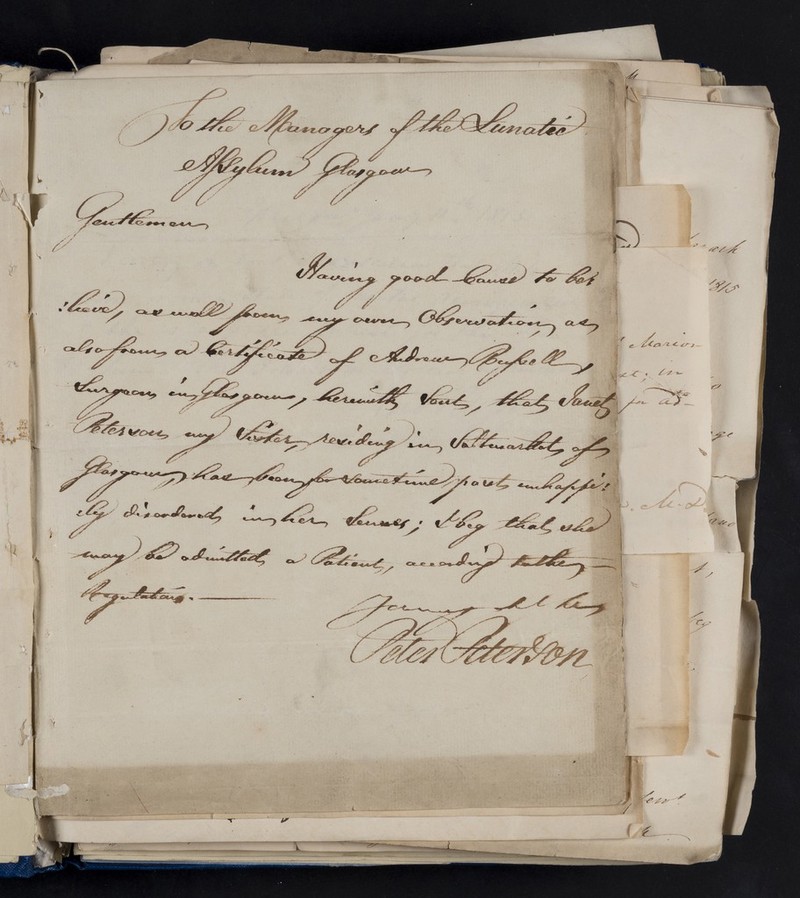 To the Managers of the Lunatic
Assylum Glasgow
Gentlemen
Having good Cause to be:
:lieve, as well from my own Observation, as
also from a Certificate of Andrew Russell,
Surgeon in Glasgow, herewith Sent, that Janet
Peterson my Sister, residing in Saltmarket of
Glasgow, has been for sometime past unhappi:
:ly disordered in her Senses; I beg that she
may be admitted a Patient, according to the
Regulations.
Peter Peterson
mark
1815
Marion
M. D